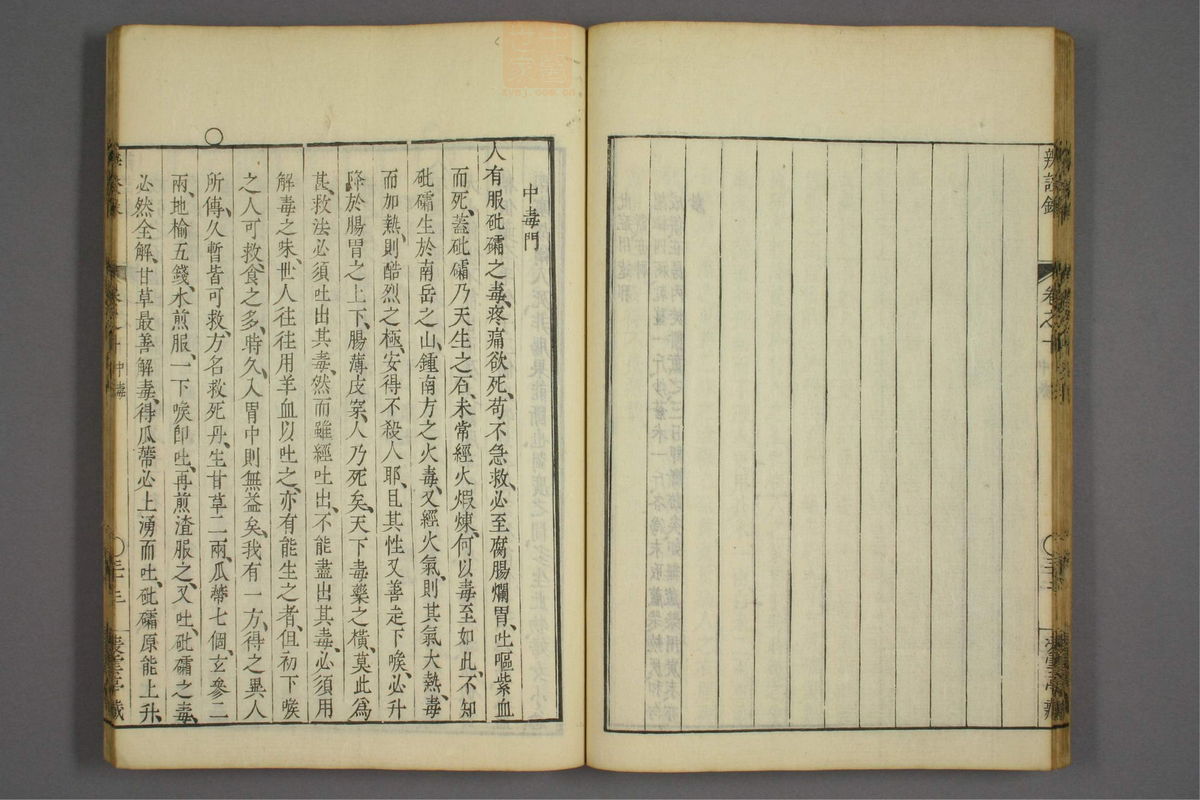 辨證錄
卷之十
中毒門
人有服砒礵之毒、疼痛欲死、苟不急救、必至腐腸爛胃、吐嘔紫血
而死、蓋砒礵乃天生之石、未常經火煆煉、何以毒至如此、不知
砒礵生於南岳之山、鍾南方之火毒、又經火氣、則其氣大熱、毒
而加熱、則酷烈之極、安得不殺人耶、且其性又善走下喉、必升
降於腸胃之上下、腸薄皮穿、人乃死矣、天下毒藥之橫、莫此爲
甚、救法必須吐出其毒、然而雖經吐出、不能盡出其毒、必須用
解毒之味、世人往往用羊血以吐之、亦有能生之者、但初下喉
之人可救、食之多、時久、入胃中則無益矣、我有一方、得之異人
所傳、久暫皆可救、方名救死丹、生甘草二兩、瓜蒂七個、玄參二
兩、地榆五錢、水煎服、一下喉卽吐、再煎渣服之、又吐、砒礵之毒、
必然全解、甘草最善解毒、得瓜蒂必上湧而吐、砒礵原能上升、
中毒